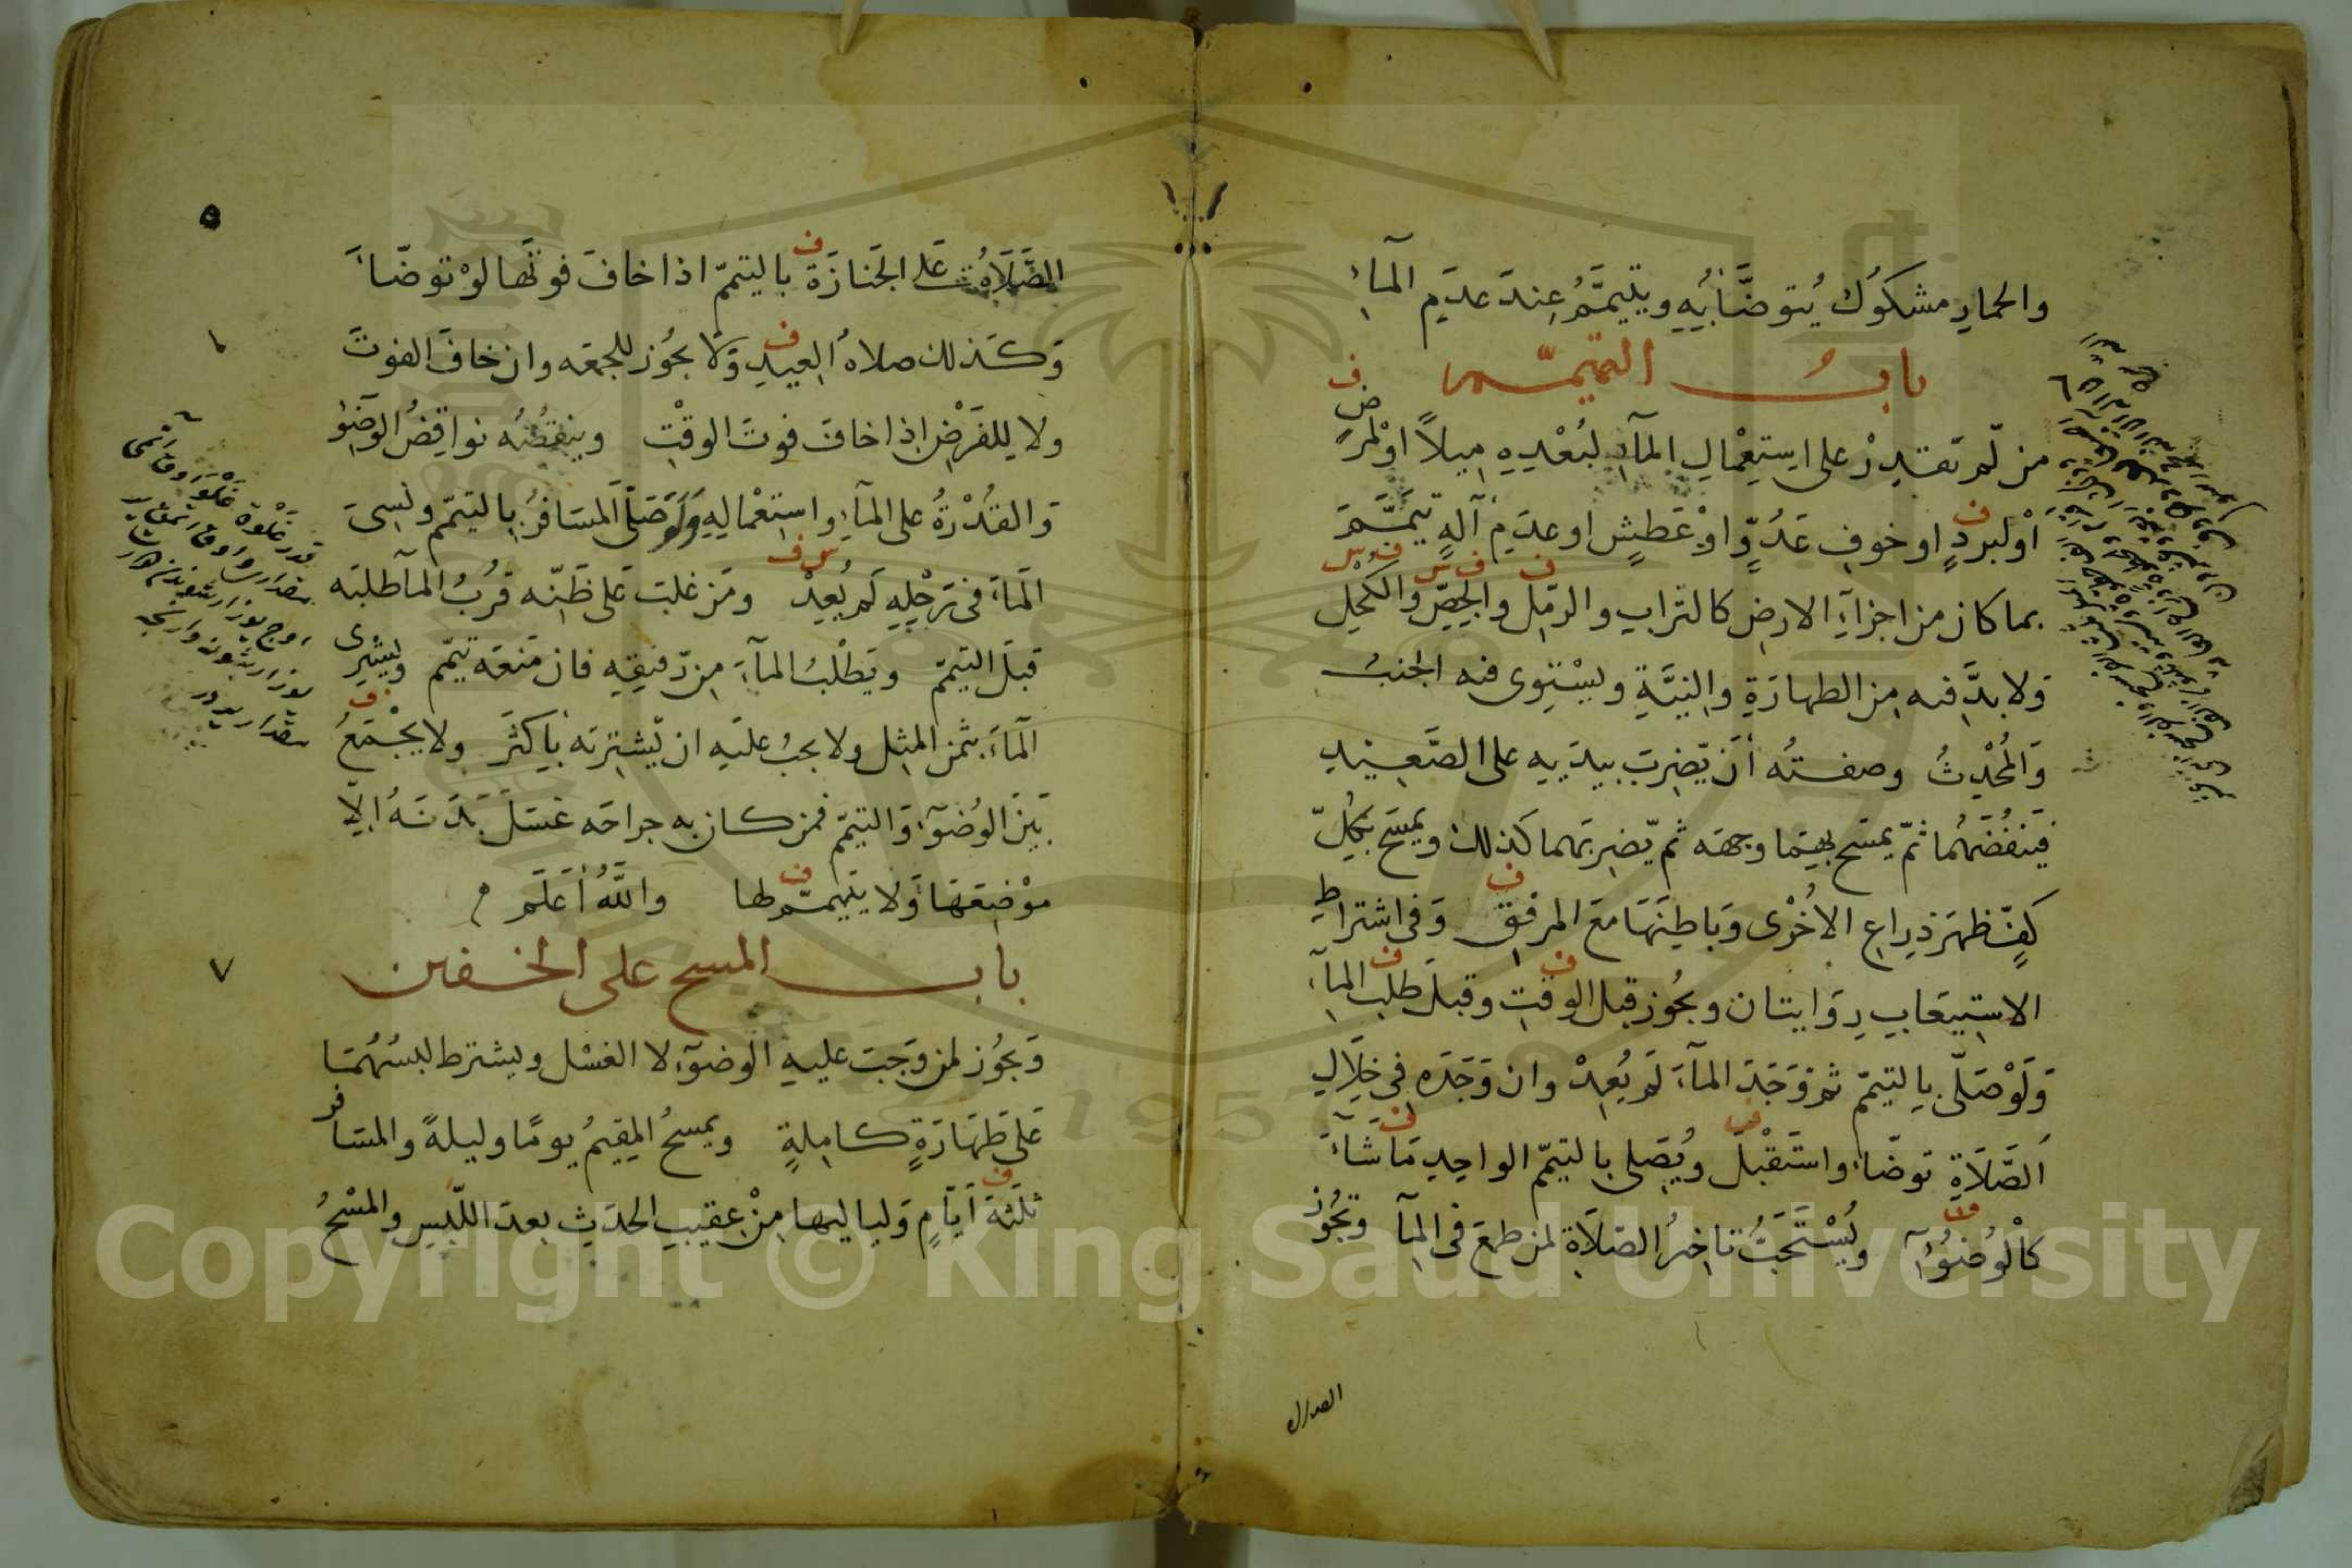 والحمار مشكوك يتوضأ به ويتيمم عند عدم الماء
باب التيمم
من لم يقدر على استعمال الماء لبعده ميلاً او لمرض
او لبرد او خوف عدوّ او عطش او عدم آلة تيمّم
بما كان من اجزاء الارض كالتراب والرمل والجصّ والكحل
ولا بدّ فيه من الطهارة والنيّة ويستوى فيه الجنب
والمحدث وصفته أن يضرب بيديه على الصعيد
فينفضهما ثمّ يمسح بهما وجهه ثم يضربهما كذلك ويمسح بكلّ
كفّ ظهر ذراع الاخرى وباطنها مع المرفق وفى اشتراط
الاستيعاب روايتان ويجوز قبل الوقت وقبل طلب الماء
ولو صلّى بالتيمّم ثم وجد الماء لم يعد وان وجده فى خلال
الصلاة توضّأ واستقبل ويصلى بالتيمّم الواحد ما شاء
كالوضوء ويستحبّ تاخير الصلاة لمن طمع فى الماء وتجوز
الصلاة
٥
الصلاة على الجنازة باليتمّم اذا خاف فوتها لو توضّأ
وكذلك صلاة العيد ولا يجوز للجمعه وان خاف الفوت
ولا للفرض اذا خاف فوت الوقت وينقضه نواقض الوضوء
والقدرة على الماء واستعماله ولو صلّى المسافر باليتمّم ونسى
الماء فى رحله لم يعد ومن غلب على ظنّه قرب الماء طلبه
قبل التيمّم ويطلب الماء من رفيقه فان منعه تيمّم ويشترى
الماء بثمن المثل ولا يجب عليه ان يشتريه بأكثر ولا يجمع
بين الوضوء والتيمّم فمن كان به جراحه غسل بدنه الّا
موضعها ولا يتيمّم لها والله أعلم
باب المسح على الخفين
٧
ويجوز لمن وجب عليه الوضوء لا الغسل ويشترط لبسهما
على طهارة كاملة ويمسح المقيم يومًا وليلةً والمسافر
ثلثة أيّام ولياليها من عقيب الحدث بعد اللبس والمسح
Copyright © King Saud University
1957